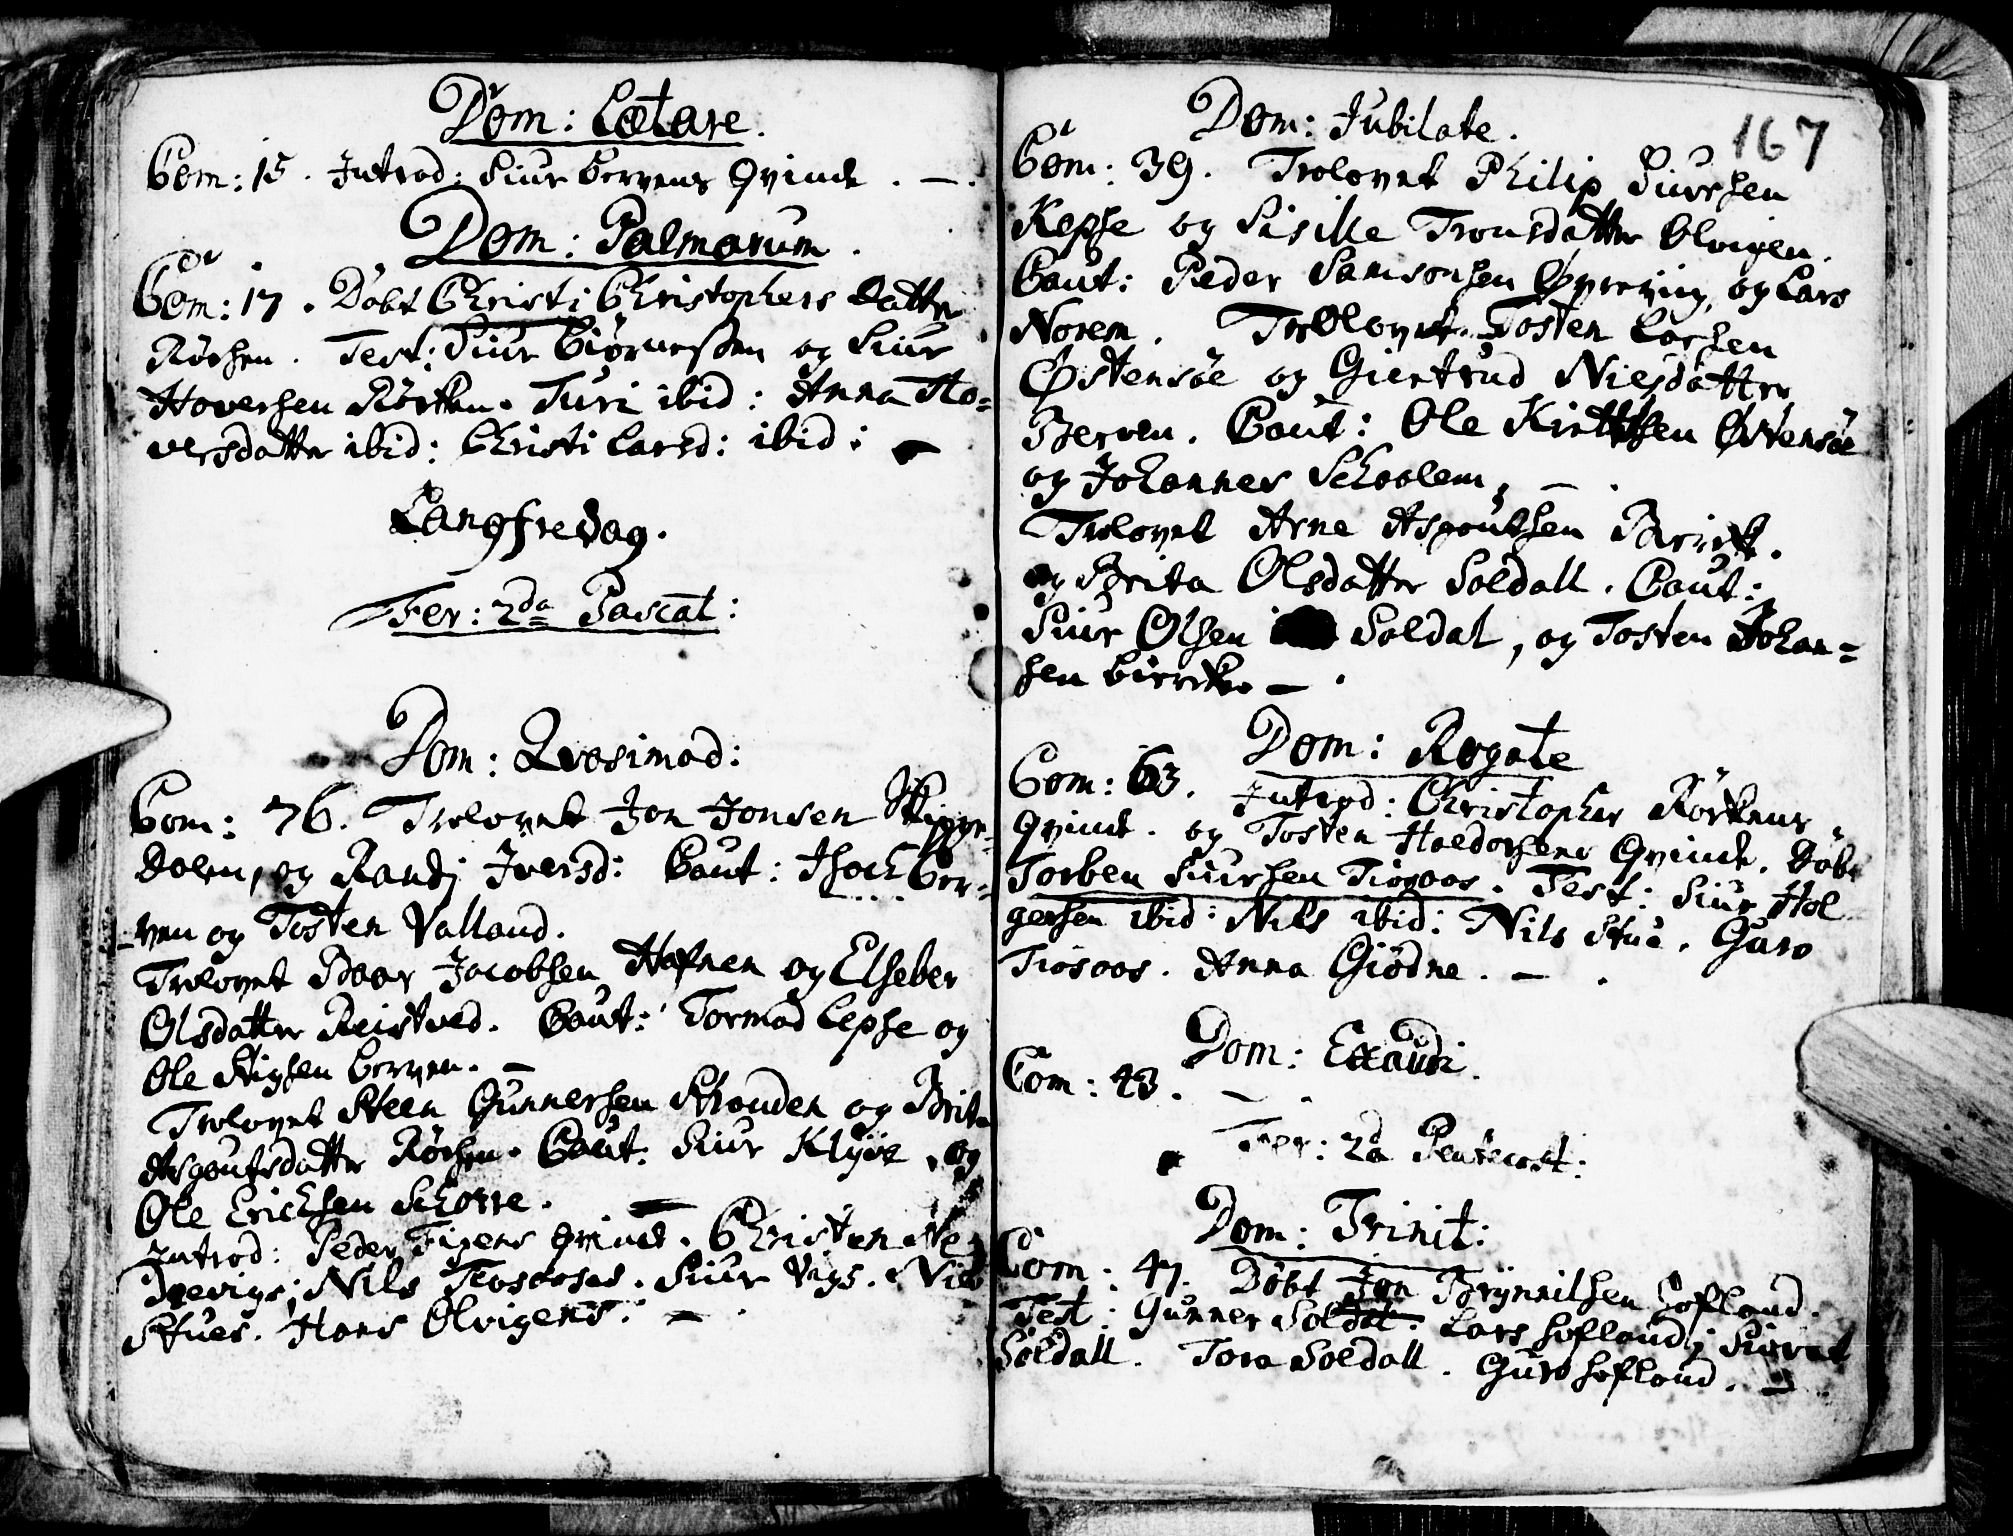 Dom: Lætare.
Com: 15. Introd: Siur Bervens Qvinde. —.
Dom: Palmarum.
Com: 17. Döbt Christi Christophers Datter
Rörchen. Test: Siur Biörnessen og Siur
Hoversen Rörken. Turi ibid: Anna Ho-
versdatter ibid: Christi Larsd: ibid: —
Langfredag.
Fer: 2da Pascal:
Dom: Qvasimod:
Com: 76. Trolovet Jon Jonsen
Dalen, og Randj Iversd: Caut: Isach Ber-
ven og Tosten Valland.
Trolovet Baar Jacobsen Hafnen og Elseber
Olsdatter Reistved. Caut: Tormod Lepse og
Ole Stigsen Berven. —
Trolovet Steen Gunnersen Schouden og Brita
Asgoutsdatter Rörchen. Caut: Siur Klyve, og
Ole Erichsen Schorre. —
Introd: Peder Fixens Qvinde. Christen Ne-
Nils Tiosaases. Siur Vigs. Nils
Stues. Hans Olvigens. —
167
Dom: Jubilate.
Com: 39. Trolovet Philip Siursen
Kepse og Sisille Tronsdatter Olvigen.
Caut: Peder Samsonsen og Lars
Norem. Trolovet Tosten Larsen
Østensöe og Giertrud Nielsdatter
Berven. Caut: Ole Østensöe
og Johannes Schaalem, —.
Trolovet Arne Asgoutsen
og Brita Olsdatter Soldall. Caut:
Siur Olsen Soldal, og Tosten Johan-
sen —.
Dom: Rogate
Com: 63. Introd: Christopher Rörkens
Qvinde. og Tosten Haldorsens Qvinde. Döbt
Torben Siursen Tiosaas. Test: Siur Hol
gersen ibid: Nils ibid: Nils Stue. Guro
Tiosaas. Anna Giödne. —.
Dom: Exaudi.
Com: 43. —.
Fer: 2da Pentecost:
Dom: Trinit:
Com: 47. Döbt Jon Brynnilsen Sofland.
Test: Gunner Soldal. Lars Sofland; Siuvat
Soldall. Tora Soldall. Guro Sofland. —